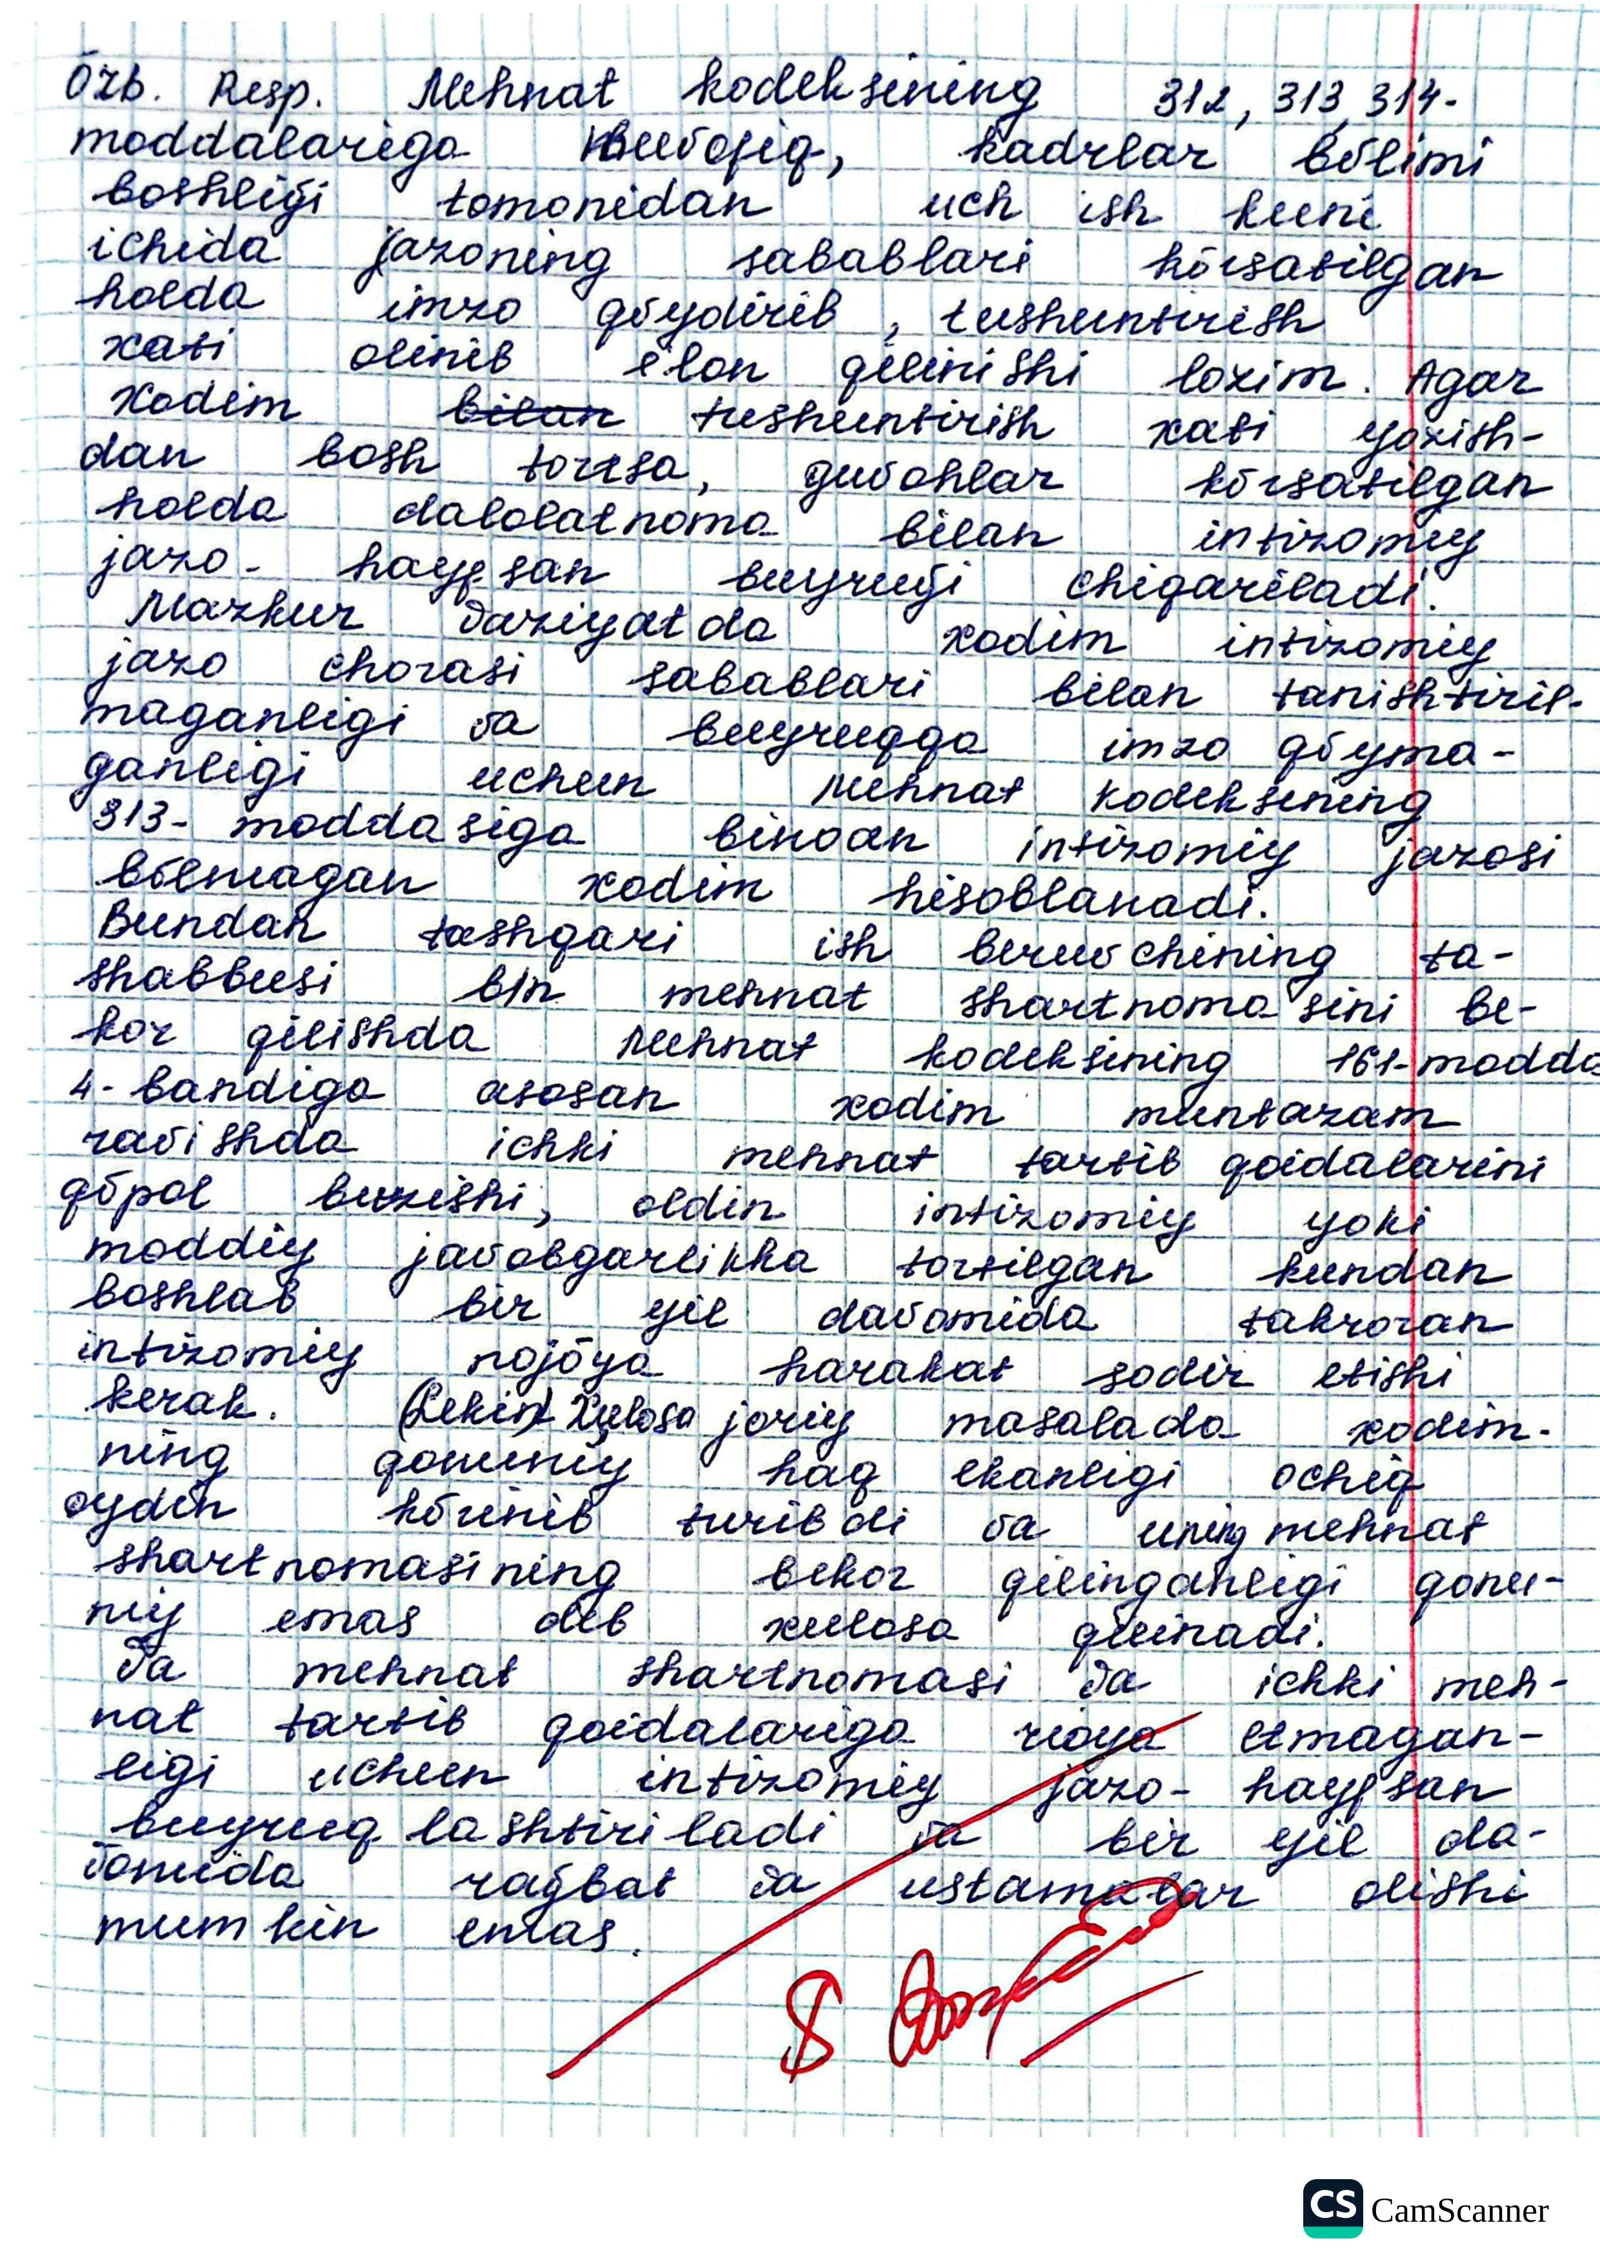 Ōzb. Resp. Mehnat kodeksining 312, 313, 314-
moddalariga muvofiq, kadrlar bōlimi
boshlig̃i tomonidan uch ish kuni
ichida jazoning sabablari kōrsatilgan
holda imzo qōydirib, tushuntirish
xati olinib e'lon qilinishi lozim. Agar
xodim bilan tushuntirish xati yozish-
dan bosh tortsa, guvohlar kōrsatilgan
holda dalolatnoma bilan intizomiy
jazo - hayfsan buyrug̃i chiqariladi.
Mazkur vaziyatda xodim intizomiy
jazo chorasi sabablari bilan tanishtiril-
maganligi va buyruqqa imzo qōyma-
ganligi uchun Mehnat kodeksining
313- moddasiga binoan intizomiy jazosi
bōlmagan xodim hisoblanadi.
Bundan tashqari ish beruvchining ta-
shabbusi b/n mehnat shartnomasini be-
kor qilishda Mehnat kodeksining 161-modda
4-bandiga asosan xodim muntazam
ravishda ichki mehnat tartib qoidalarini
qōpol buzishi, oldin intizomiy yoki
moddiy javobgarlikka tortilgan kundan
boshlab bir yil davomida takroran
intizomiy nojōya harakat sodir etishi
kerak. (Lekin) Xulosa joriy masalada xodim-
ning qonuniy haq ekanligi ochiq
oydin kōrinib turibdi va uning mehnat
shartnomasining bekor qilinganligi qonu-
niy emas deb xulosa qilinadi.
Va mehnat shartnomasi va ichki meh-
nat tartib qoidalariga rioya etmagan-
ligi uchun intizomiy jazo- hayfsan
buyruqlashtiriladi va bir yil da-
vomida rag̃bat va ustamalar olishi
mumkin emas.
8
CS CamScanner